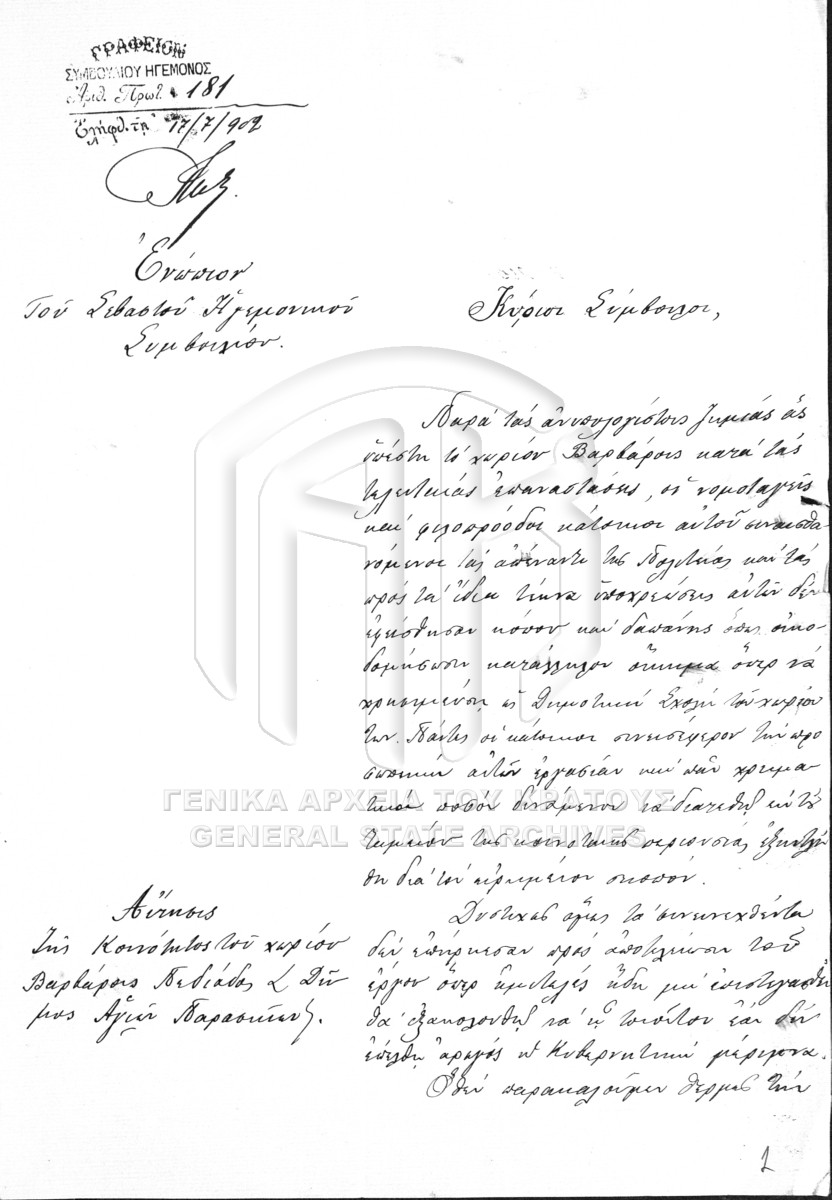 ΓΡΑΦΕΙΟΝ
ΣΥΜΒΟΥΛΙΟΥ ΗΓΕΜΟΝΟΣ
Ἀριθ. Πρωτ. 181
Ἐλήφθ. τῇ 17/7/902
Ἐνώπιον
Τοῦ Σεβαστοῦ Ἡγεμονικοῦ
Συμβουλίου.
Κύριοι Σύμβουλοι,
Παρὰ τὰς ἀνυπολογίστους ζημίας ἃς
ὑπέστη τὸ χωρίον Βαρβάροις κατὰ τὰς
τελευταίας ἐπαναστάσεις, οἱ νομοταγεῖς
καὶ φιλοπρόοδοι κάτοικοι αὐτοῦ συναισθα
νόμενοι τὰς ἀπέναντι τῆς Πολιτείας καὶ τὰς
πρὸς τὰ ἴδια τέκνα ὑποχρεώσεις αὐτῶν δὲν
ἐφείσθησαν κόπου καὶ δαπάνης ὅπως οἰκο
δομήσωσι κατάλληλον οἴκημα ὅπερ νὰ
χρησιμεύσῃ ὡς Δημοτικὴ Σχολὴ τοῦ χωρίου
των. Πάντες οἱ κάτοικοι συνεισέφερον τὴν προ
σωπικὴν αὐτῶν ἐργασίαν καὶ πᾶν χρημα
τικὸν ποσὸν δυνάμενον νὰ διατεθῇ ἐκ τοῦ
ταμείου τῆς κοινοτικῆς περιουσίας ἐξηντλή
θη διὰ τὸν εἰρημένον σκοπόν.
Δυστυχῶς ὅμως τὰ συνεισενεχθέντα
δὲν ἐπήρκεσαν πρὸς ἀποτελείωσιν τοῦ
ἔργου ὅπερ ἡμιτελὲς ἤδη μὴ ἐπιστεγασθὲν
θὰ ἐξακολουθῇ νὰ ᾖ τοιοῦτον ἐὰν δὲν
ἐπέλθῃ ἀρωγὸς ἡ Κυβερνητικὴ μέριμνα.
Ὅθεν παρακαλοῦμεν θερμῶς τὴν
Αἴτησις
Τῆς Κοινότητος τοῦ χωρίου
Βαρβάροις Πεδιάδος Δῆ
μος Ἁγίων Παρασκιῶν.
ΓΕΝΙΚΑ ΑΡΧΕΙΑ ΤΟΥ ΚΡΑΤΟΥΣ
GENERAL STATE ARCHIVES
1